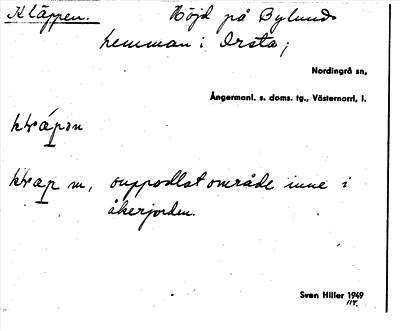 Kläppen. Höjd på Bylunds
hemman i Orsta;
Nordingrå sn,
Ångermanl. s. doms. tg., Västernorrl. l.
ouppodlat område inne i
åkerjorden.
Sven Hiller 1949